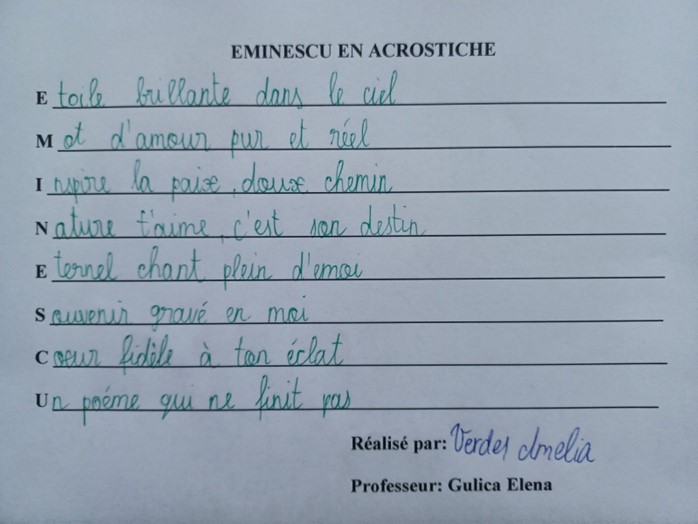 EMINESCU EN ACROSTICHE
Etoile brillante dans le ciel
Mot d'amour pur et réel
Inspire la paix, doux chemin
Nature t'aime, c'est son destin
Eternel chant plein d'emoi
Souvenir gravé en moi
Coeur fidèle à ton éclat
Un poéme qui ne finit pas
Réalisé par: Verdes Amelia
Professeur: Gulica Elena